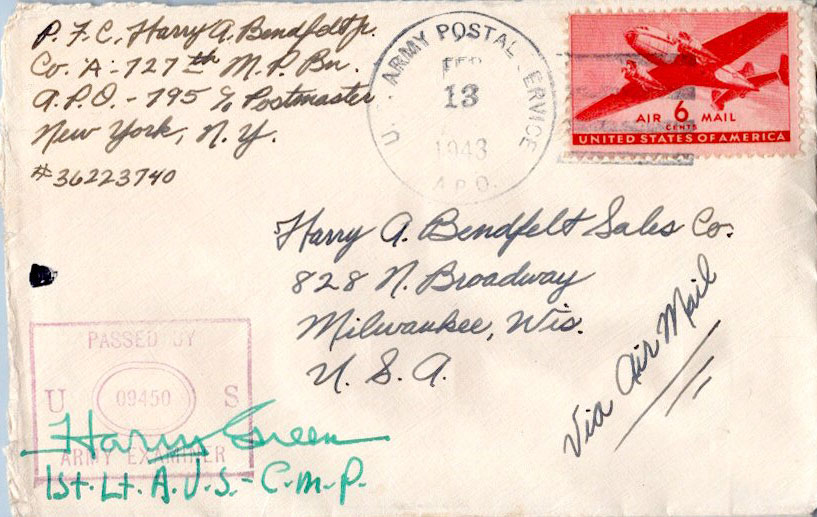 P.F.C. Harry A. Bendfelt Jr.
Co. "A" - 727th M.P. Bn.
A.P.O. - 795 c/o Postmaster
New York, N.Y.
#36223740
U. S. ARMY POSTAL SERVICE
FEB
13
1943
A.P.O.
AIR 6 MAIL
CENTS
UNITED STATES OF AMERICA
Harry A. Bendfelt Sales Co.
828 N. Broadway
Milwaukee, Wis.
U. S. A.
Via Air Mail
PASSED BY
U 09450 S
ARMY EXAMINER
Harry Green
1st. Lt. A.U.S. - C.M.P.